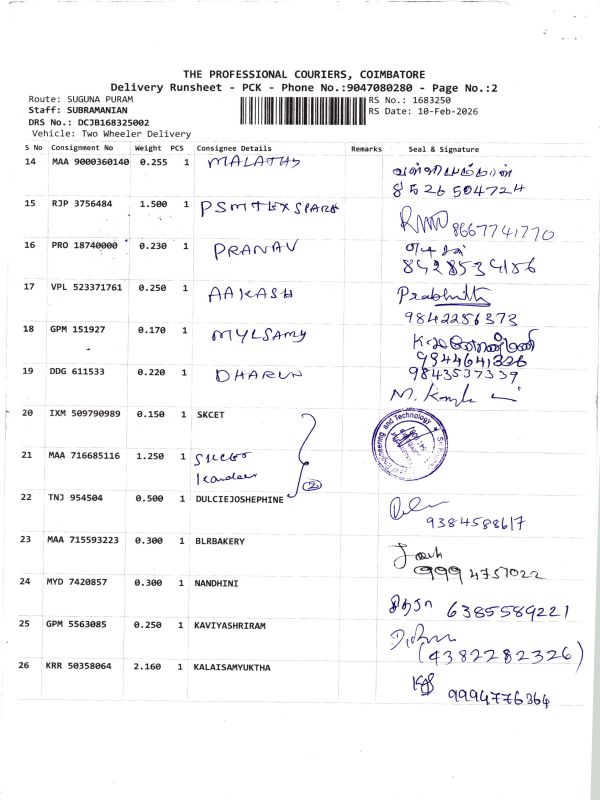 THE PROFESSIONAL COURIERS, COIMBATORE
Delivery Runsheet - PCK - Phone No.:9047080280 - Page No.:2
Route: SUGUNA PURAM
RS No.: 1683250
Staff: SUBRAMANIAN
RS Date: 10-Feb-2026
DRS No.: DCJB168325002
Vehicle: Two Wheeler Delivery
S No Consignment No Weight PCS Consignee Details Remarks Seal & Signature
14 MAA 9000360140 0.255 1 MALATHY
8526504724
15 RJP 3756484 1.500 1 PSMTEXSPARE
8667741770
16 PRO 18740000 0.230 1 PRANAV
8428534156
17 VPL 523371761 0.250 1 AAKASH Prabhith
9842286373
18 GPM 151927 0.170 1 MYLSAMY
9344641326
19 DDG 611533 0.220 1 DHARUN 9843537339
20 IXM 509790989 0.150 1 SKCET
of Engineering and Technology
21 MAA 716685116 1.250 1
2
22 TNJ 954504 0.500 1 DULCIEJOSHEPHINE
9384588617
23 MAA 715593223 0.300 1 BLRBAKERY
9994757022
24 MYD 7420857 0.300 1 NANDHINI
6385589221
25 GPM 5563085 0.250 1 KAVIYASHRIRAM
(4382282326)
26 KRR 50358064 2.160 1 KALAISAMYUKTHA
9994776364